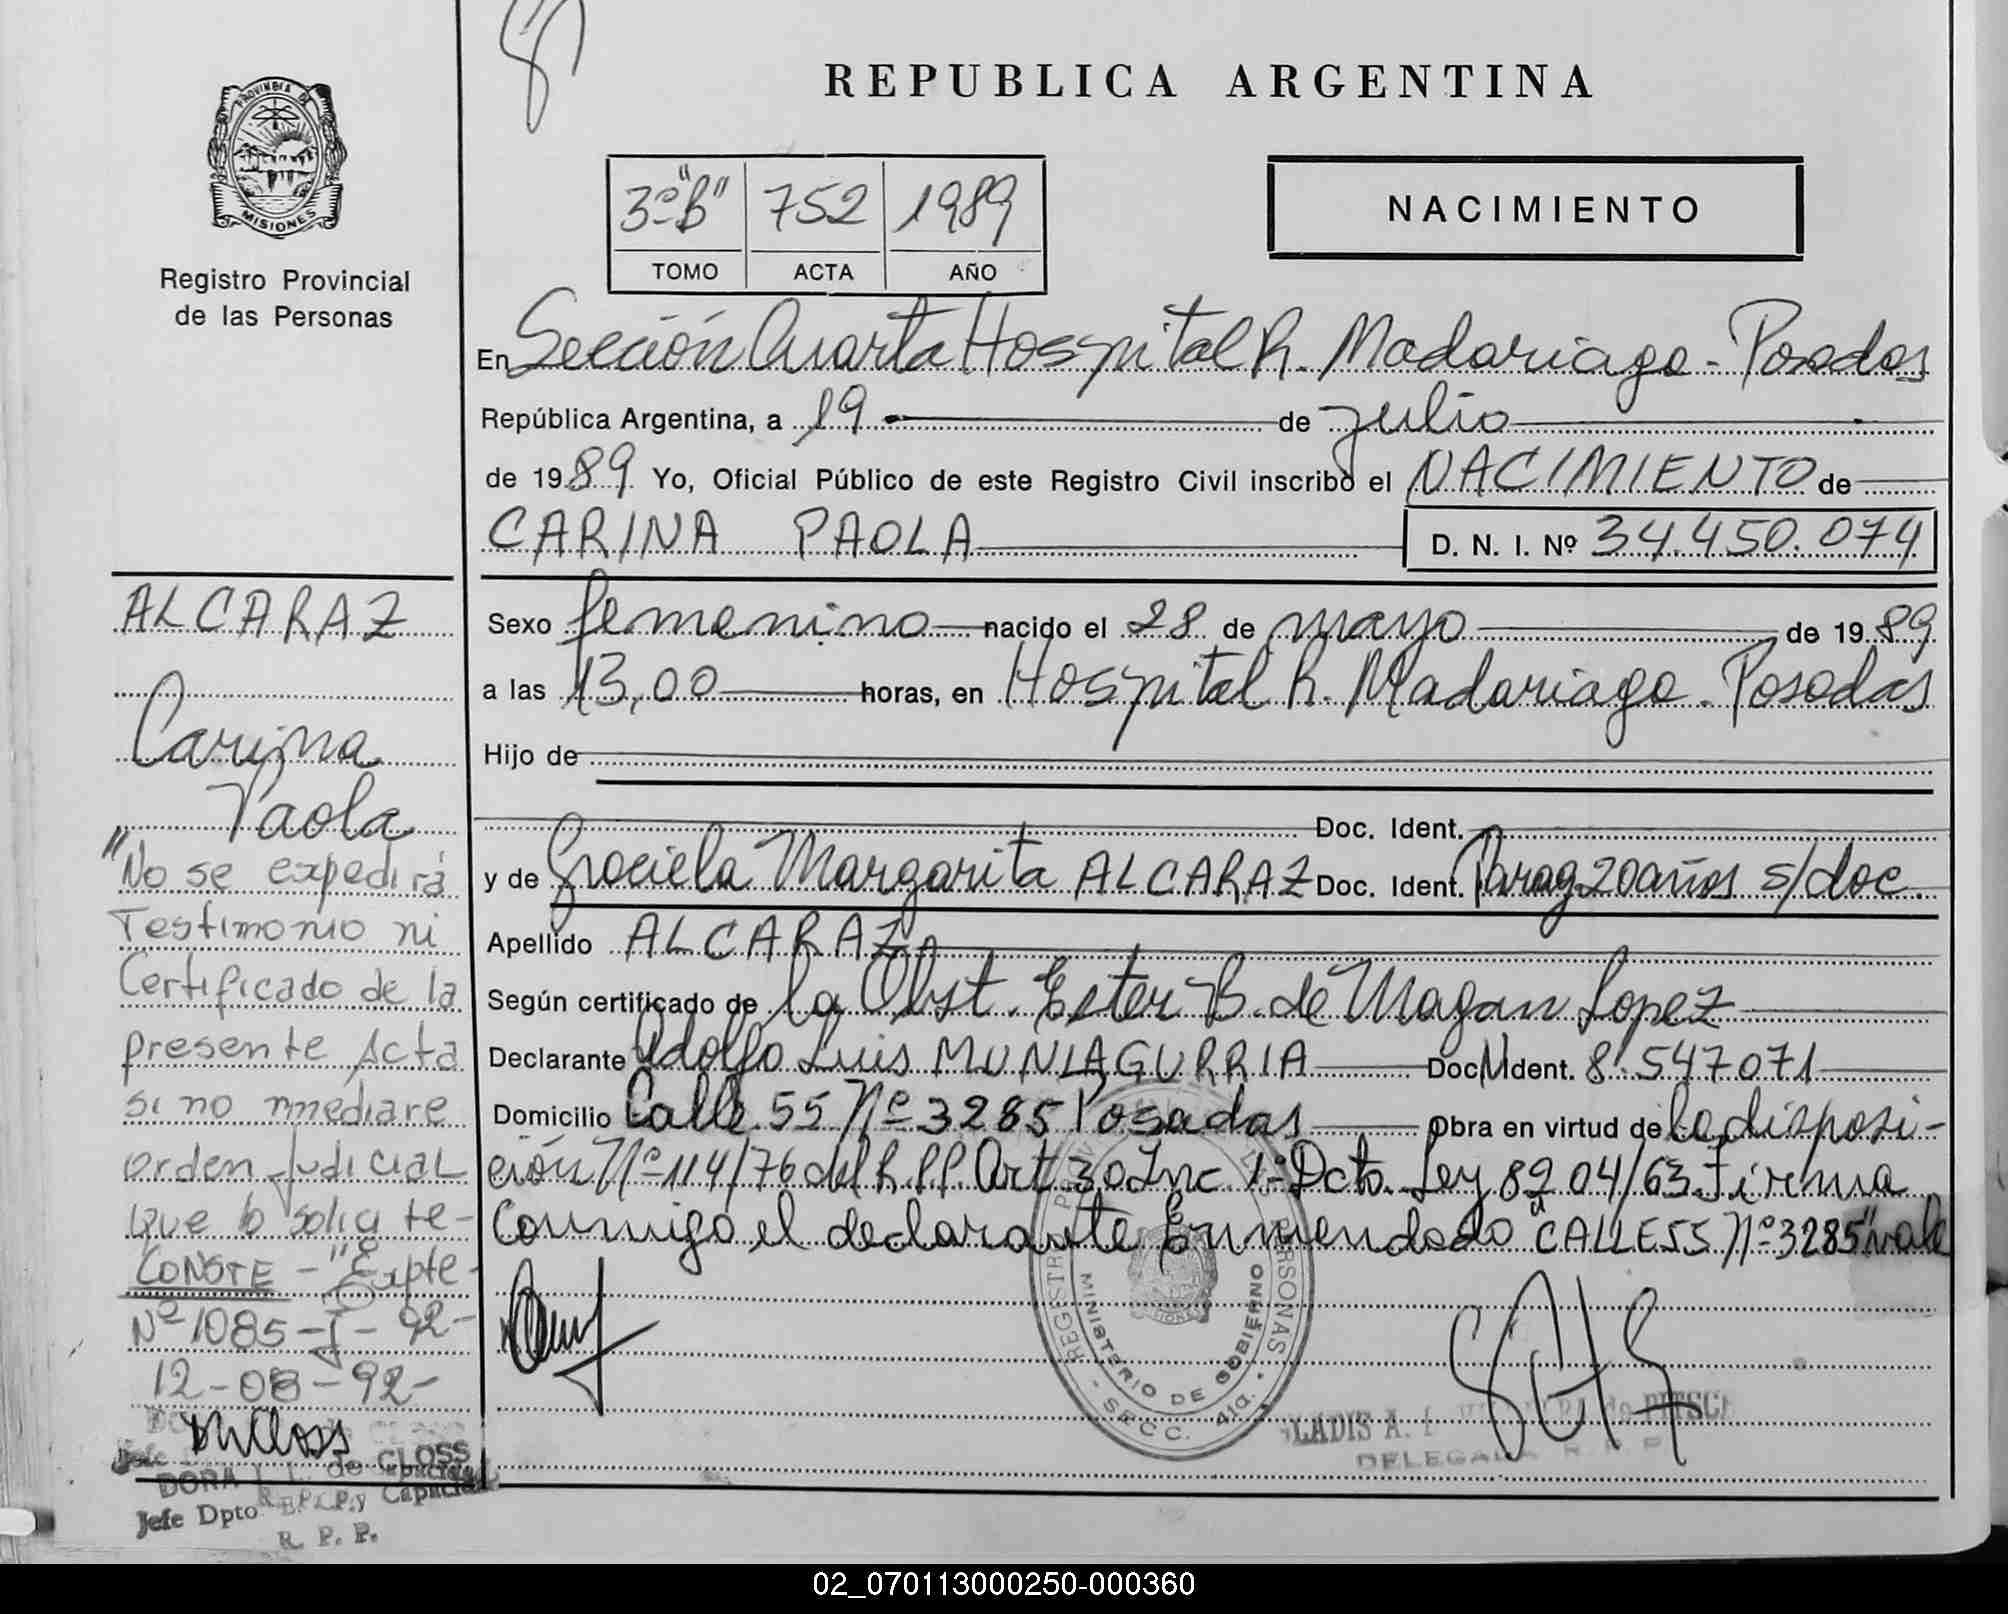 REPUBLICA ARGENTINA
PROVINCIA DE
MISIONES
Registro Provincial
de las Personas
3º "B" 752 1989
TOMO ACTA AÑO
NACIMIENTO
En Sección Cuarta Hospital R. Madariaga - Posadas
República Argentina, a 19 de julio
de 1989 Yo, Oficial Público de este Registro Civil inscribo el NACIMIENTO de
CARINA PAOLA D. N. I. Nº 34.450.074
Sexo femenino nacido el 28 de mayo de 1989
a las 13,00 horas, en Hospital R. Madariaga. Posadas
Hijo de
Doc. Ident.
y de Graciela Margarita ALCARAZ Doc. Ident. Parag. 20 años s/doc.
Apellido ALCARAZ
Según certificado de la Obst. Ester B. de Magan Lopez
Declarante Adolfo Luis MUNIAGURRIA Doc. Ident. 8.547071
Domicilio Calle 55 Nº 3285 Posadas Obra en virtud de la disposi-
ción Nº 114/76 del R.P.P. Art 30 Inc. 1º Dcto. Ley 8204/63. Firma
conmigo el declarante Enmendado "CALLE 55 Nº 3285" vale
ALCARAZ
Carina
Paola
"No se expedirá
Testimonio ni
Certificado de la
presente Acta
si no mediare
orden Judicial
que lo solicite-
CONSTE - "Expte-
Nº 1085-J-92-
12-08-92-
DORA de CLOSS
Jefe Dpto. Capacidad
R. P. P.
REGISTRO PROV. PERSONAS
MINISTERIO DE GOBIERNO
- SECC. 4ta. -
GLADIS A. de PITSCH
DELEGADA R. P. P.
02_070113000250-000360